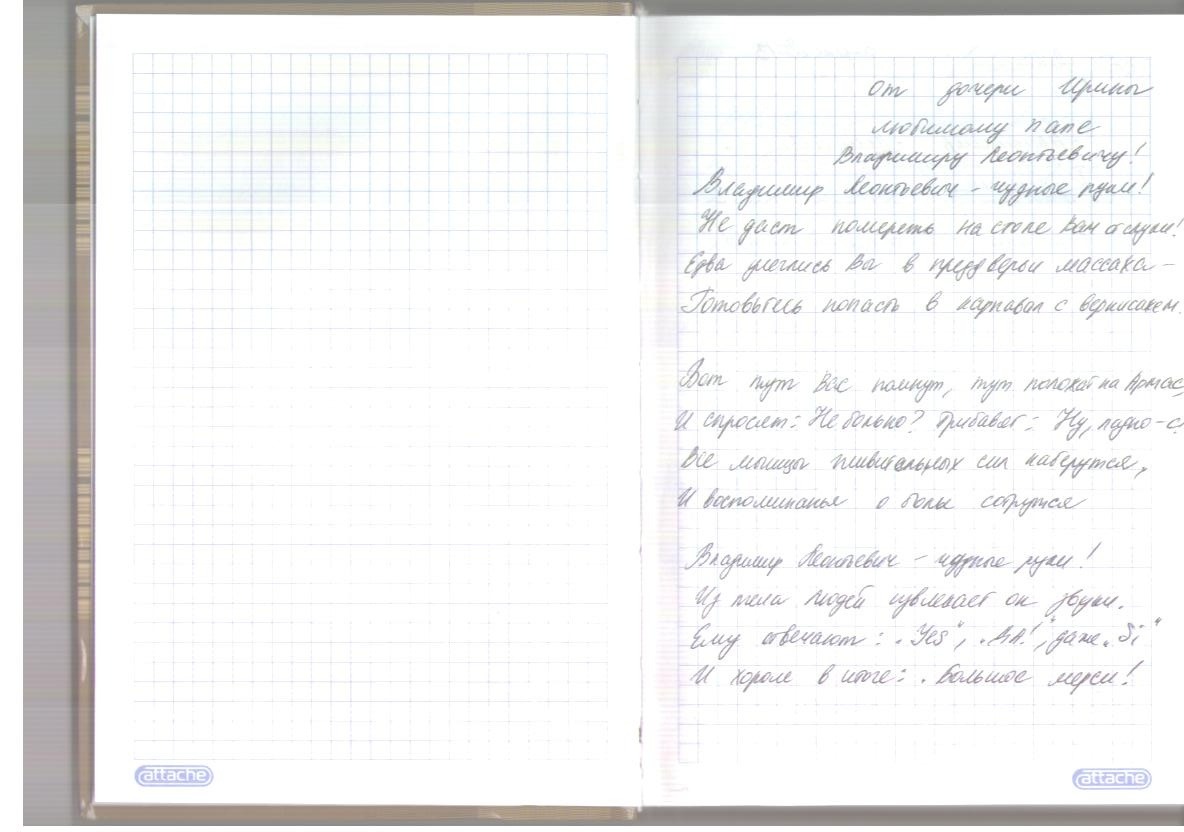 от дочери Ирины
любимому папе
Владимиру Леонтьевичу!
Владимир Леонтьевич - чудные руки!
Не даст помереть на столе Вам от скуки!
Едва улеглись Вы в преддверьи массажа -
Готовьтесь попасть в карнавал с вернисажем.
Вот тут Вас помнут, тут положат на
И спросят: Не больно? Прибавят: Ну, ладно-с.
Все мышцы живительных сил наберутся,
И воспоминанья о боли сотрутся
Владимир Леонтьевич - чудные руки!
Из тела людей извлекает он звуки.
Ему отвечают: „Yes", „ДА!", даже „Si"
И хором в итоге: „Большое мерси!
attache
attache